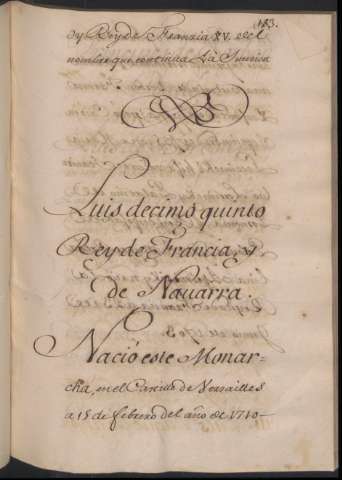 183.
oy Rey de Franzia XV. del
nombre que continua la
Luis decimo quinto
Rey de Francia, y
de Navarra.
Nació este Monar-
cha, en el Castillo de Versailles
a 15 de febrero del año de 1710